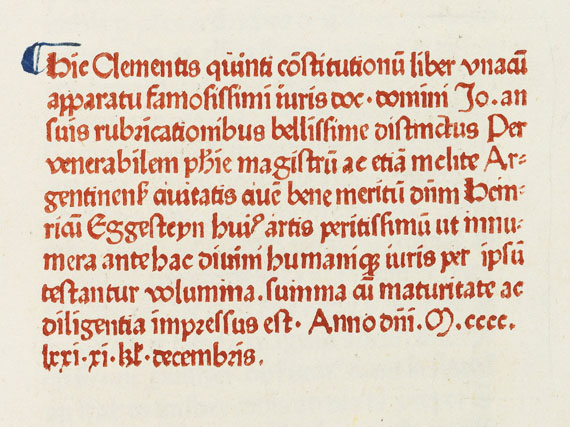 Hic Clementis quinti cōstitutionū liber vnacū
apparatu famosissimi iuris doc · domini Jo. an
suis rubricationibus bellissime distinctus Per
venerabilem phīe magistrū ac etiā inclite Ar⸗
gentinenẜ ciuitatis ciuē bene meritū dn̄m Hein⸗
ricū Eggesteyn huiꝰ artis peritissimū ut innu⸗
mera antehac diuini humaniqꝫ iuris per ipsū
testantur volumina. summa cū maturitate ac
diligentia impressus est · Anno dn̄i. M. cccc.
lxxi · xi · kl̄ · decembris.